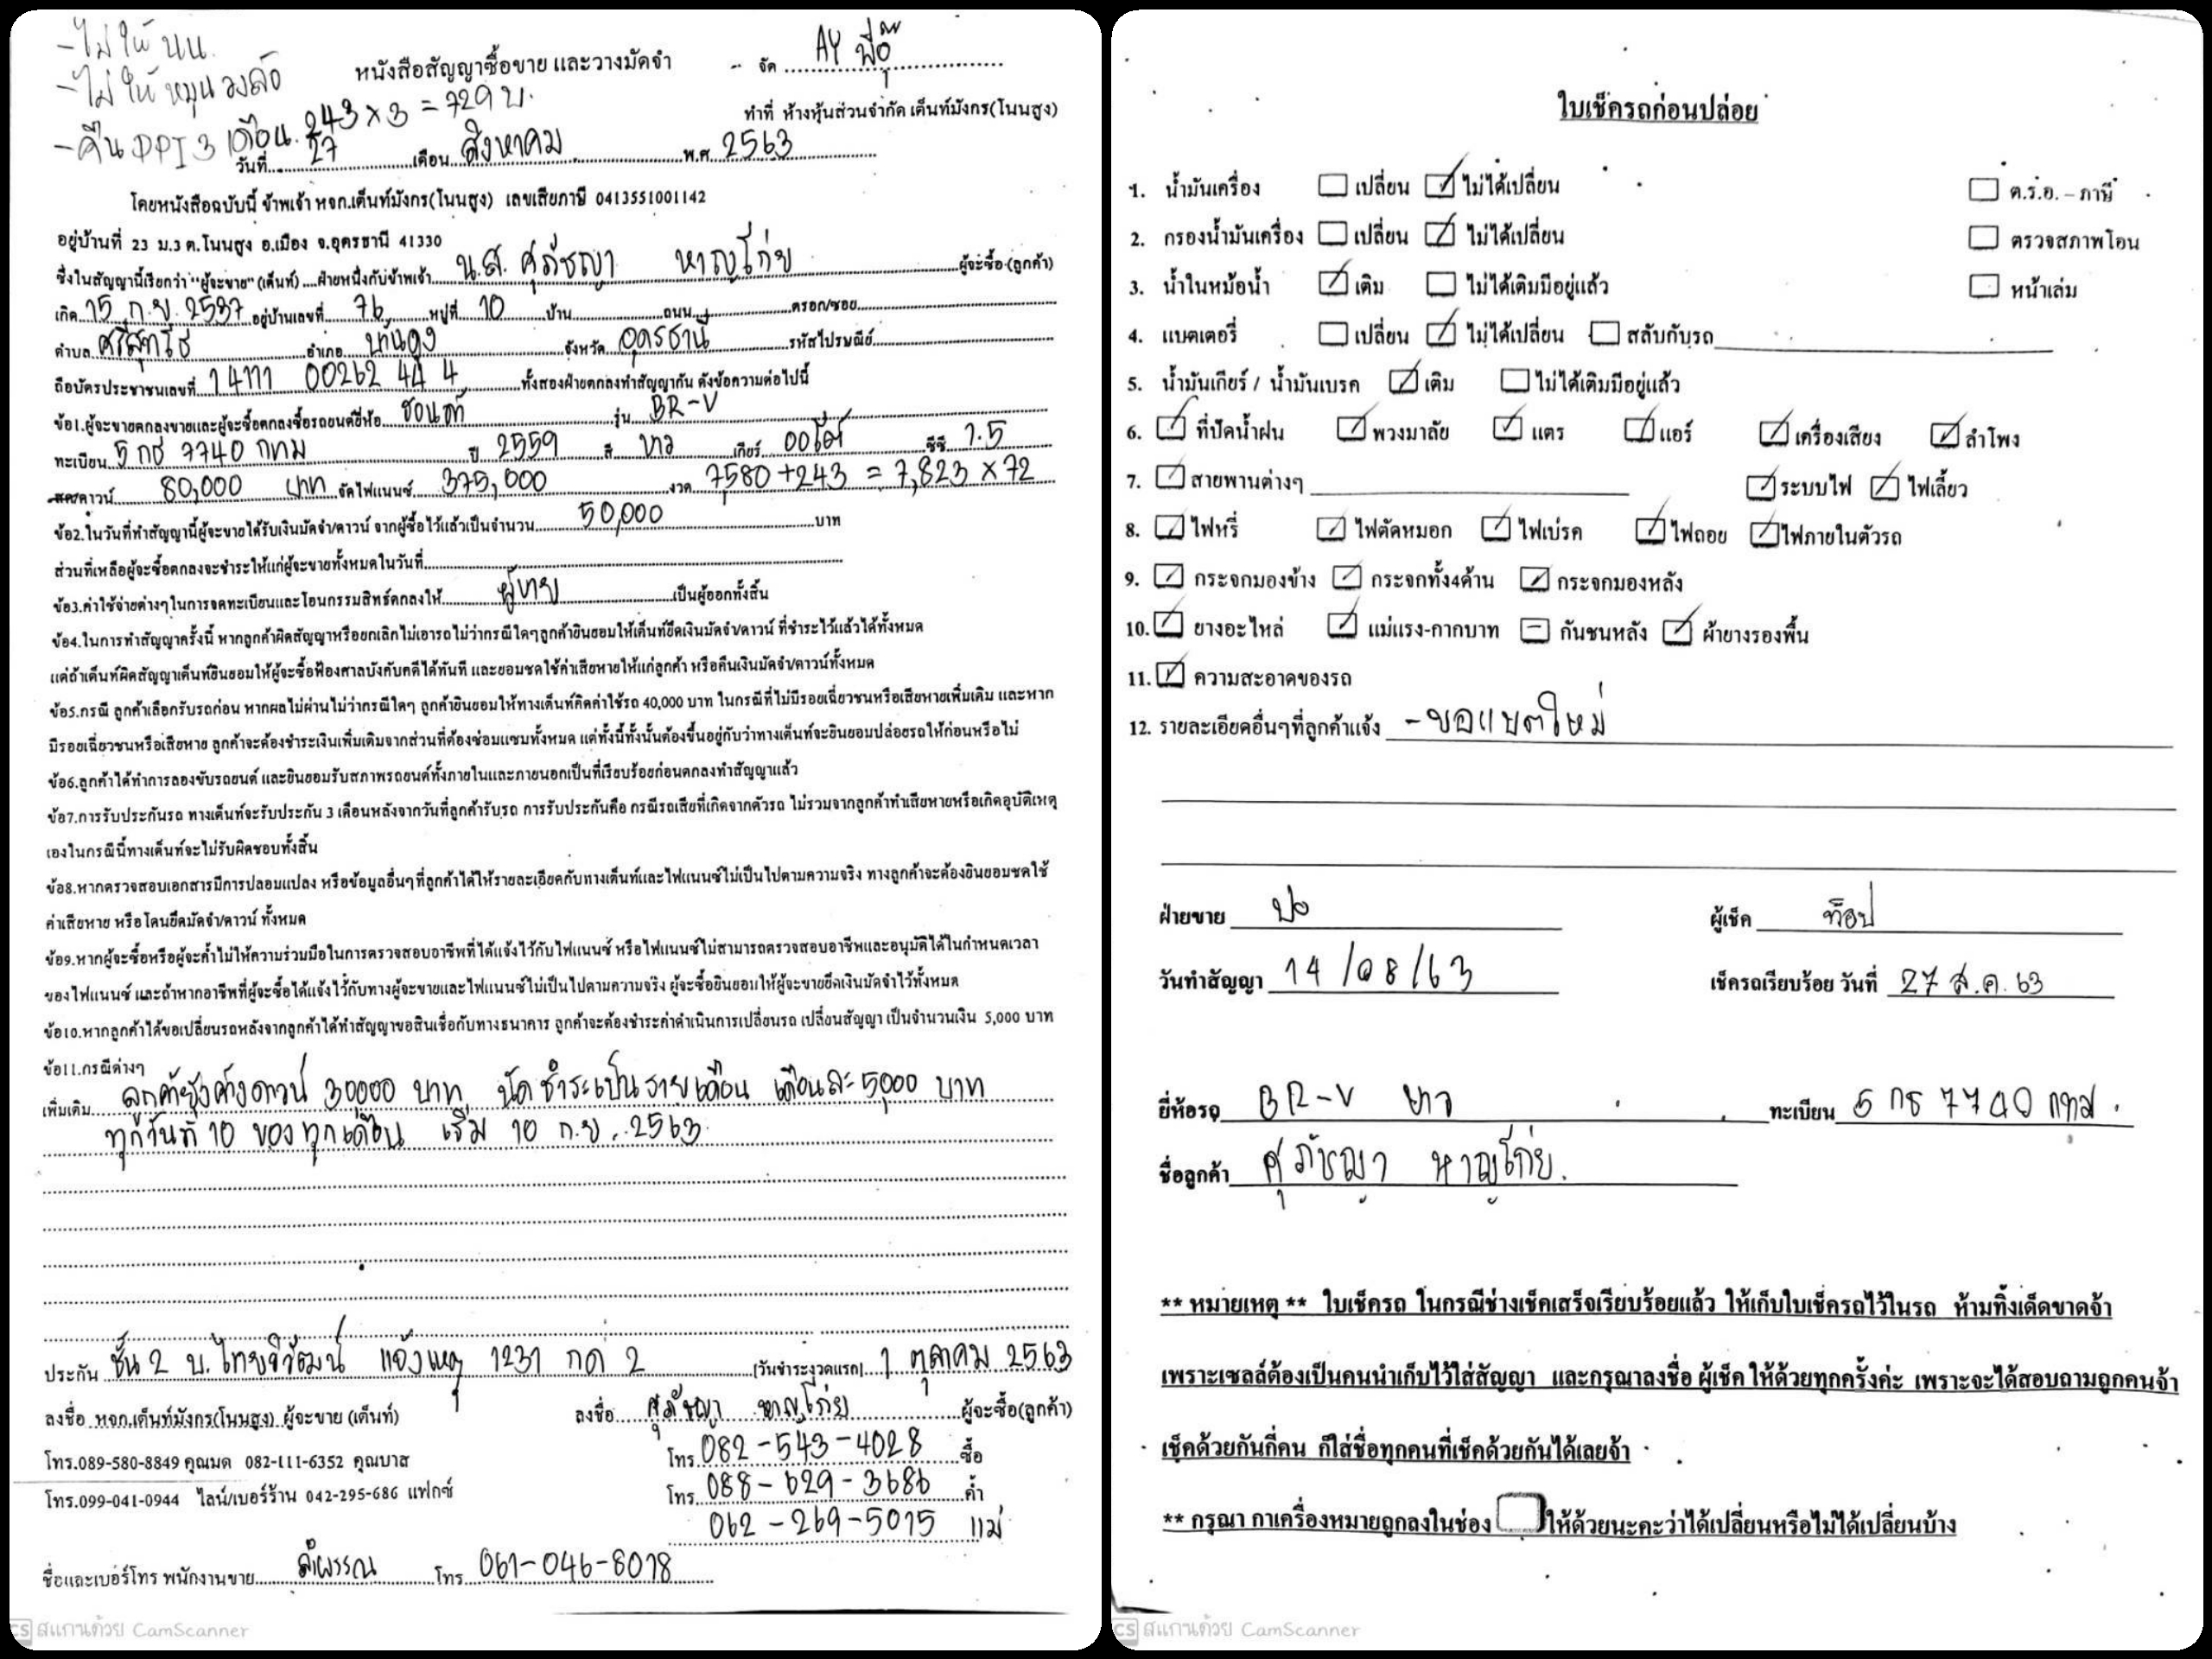 - ไม่ให้ นน.
- ไม่ให้ หมุนวงล้อ
- คืน PPI 3 เดือน 243 x 3 = 729 บ.
หนังสือสัญญาซื้อขาย และวางมัดจำ
จัด AY พี่อู๊
ทำที่ ห้างหุ้นส่วนจำกัด เต็นท์มังกร(โนนสูง)
วันที่ 27 เดือน สิงหาคม พ.ศ. 2563
โดยหนังสือฉบับนี้ ข้าพเจ้า หจก.เต็นท์มังกร(โนนสูง) เลขเสียภาษี 0413551001142
อยู่บ้านที่ 23 ม.3 ต.โนนสูง อ.เมือง จ.อุดรธานี 41330
ซึ่งในสัญญานี้เรียกว่า "ผู้จะขาย" (เต็นท์) ....ฝ่ายหนึ่งกับข้าพเจ้า น.ส. ศุภัชญา หาญโก่ย ผู้จะซื้อ (ลูกค้า)
เกิด 15 ก.ย. 2537 อยู่บ้านเลขที่ 76 หมู่ที่ 10 บ้าน ถนน ตรอก/ซอย
ตำบล ศรีสุทโธ อำเภอ บ้านดุง จังหวัด อุดรธานี รหัสไปรษณีย์
ถือบัตรประชาชนเลขที่ 1 4111 00262 44 4 ทั้งสองฝ่ายตกลงทำสัญญากัน ดังข้อความต่อไปนี้
ข้อ1.ผู้จะขายตกลงขายและผู้จะซื้อตกลงซื้อรถยนต์ยี่ห้อ ฮอนด้า รุ่น BR-V
ทะเบียน 5 กธ 7740 กทม ปี 2559 สี ขาว เกียร์ ออโต้ ซีซี 1.5
สด/ดาวน์ 80,000 บาท จัดไฟแนนซ์ 375,000 งวด 7580 + 243 = 7,823 x 72
ข้อ2.ในวันที่ทำสัญญานี้ผู้จะขายได้รับเงินมัดจำ/ดาวน์ จากผู้ซื้อไว้แล้วเป็นจำนวน 50,000 บาท
ส่วนที่เหลือผู้จะซื้อตกลงจะชำระให้แก่ผู้จะขายทั้งหมดในวันที่
ข้อ3.ค่าใช้จ่ายต่างๆในการจดทะเบียนและโอนกรรมสิทธิ์ตกลงให้ ผู้ขาย เป็นผู้ออกทั้งสิ้น
ข้อ4.ในการทำสัญญาครั้งนี้ หากลูกค้าผิดสัญญาหรือยกเลิกไม่เอารถไม่ว่ากรณีใดๆลูกค้ายินยอมให้เต็นท์ยึดเงินมัดจำ/ดาวน์ ที่ชำระไว้แล้วได้ทั้งหมด
แต่ถ้าเต็นท์ผิดสัญญาเต็นท์ยินยอมให้ผู้จะซื้อฟ้องศาลบังคับคดีได้ทันที และยอมชดใช้ค่าเสียหายให้แก่ลูกค้า หรือคืนเงินมัดจำ/ดาวน์ทั้งหมด
ข้อ5.กรณี ลูกค้าเลือกรับรถก่อน หากผลไม่ผ่านไม่ว่ากรณีใดๆ ลูกค้ายินยอมให้ทางเต็นท์คิดค่าใช้รถ 40,000 บาท ในกรณีที่ไม่มีรอยเฉี่ยวชนหรือเสียหายเพิ่มเติม และหาก
มีรอยเฉี่ยวชนหรือเสียหาย ลูกค้าจะต้องชำระเงินเพิ่มเติมจากส่วนที่ต้องซ่อมแซมทั้งหมด แต่ทั้งนี้ทั้งนั้นต้องขึ้นอยู่กับว่าทางเต็นท์จะยินยอมปล่อยรถให้ก่อนหรือไม่
ข้อ6.ลูกค้าได้ทำการลองขับรถยนต์ และยินยอมรับสภาพรถยนต์ทั้งภายในและภายนอกเป็นที่เรียบร้อยก่อนตกลงทำสัญญาแล้ว
ข้อ7.การรับประกันรถ ทางเต็นท์จะรับประกัน 3 เดือนหลังจากวันที่ลูกค้ารับรถ การรับประกันคือ กรณีรถเสียที่เกิดจากตัวรถ ไม่รวมจากลูกค้าทำเสียหายหรือเกิดอุบัติเหตุ
เองในกรณีนี้ทางเต็นท์จะไม่รับผิดชอบทั้งสิ้น
ข้อ8.หากตรวจสอบเอกสารมีการปลอมแปลง หรือข้อมูลอื่นๆที่ลูกค้าได้ให้รายละเอียดกับทางเต็นท์และไฟแนนซ์ไม่เป็นไปตามความจริง ทางลูกค้าจะต้องยินยอมชดใช้
ค่าเสียหาย หรือ โดนยึดมัดจำ/ดาวน์ ทั้งหมด
ข้อ9.หากผู้จะซื้อหรือผู้จะค้ำไม่ให้ความร่วมมือในการตรวจสอบอาชีพที่ได้แจ้งไว้กับไฟแนนซ์ หรือไฟแนนซ์ไม่สามารถตรวจสอบอาชีพและอนุมัติได้ในกำหนดเวลา
ของไฟแนนซ์ และถ้าหากอาชีพที่ผู้จะซื้อได้แจ้งไว้กับทางผู้จะขายและไฟแนนซ์ไม่เป็นไปตามความจริง ผู้จะซื้อยินยอมให้ผู้จะขายยึดเงินมัดจำไว้ทั้งหมด
ข้อ10.หากลูกค้าได้ขอเปลี่ยนรถหลังจากลูกค้าได้ทำสัญญาขอสินเชื่อกับทางธนาคาร ลูกค้าจะต้องชำระค่าดำเนินการเปลี่ยนรถ เปลี่ยนสัญญา เป็นจำนวนเงิน 5,000 บาท
ข้อ11.กรณีต่างๆ
เพิ่มเติม ลูกค้ายังค้างดาวน์ 30000 บาท นัดชำระเป็นรายเดือน เดือนละ 5000 บาท
ทุกวันที่ 10 ของทุกเดือน เริ่ม 10 ก.ย. 2563
ประกัน ชั้น 2 บ.ไทยวิวัฒน์ แจ้งเหตุ 1231 กด 2 (วันชำระงวดแรก) 1 ตุลาคม 2563
ลงชื่อ หจก.เต็นท์มังกร(โนนสูง) ผู้จะขาย (เต็นท์) ลงชื่อ ศุภัชญา หาญโก่ย ผู้จะซื้อ(ลูกค้า)
โทร.089-580-8849 คุณมด 082-111-6352 คุณบาส โทร. 082-543-4028 ซื้อ
โทร.099-041-0944 ไลน์/เบอร์ร้าน 042-295-686 แฟกซ์ โทร. 088-629-3686 ค้ำ
062-269-5015 แม่
ชื่อและเบอร์โทร พนักงานขาย ลำพรรณ โทร. 061-046-8018
CS สแกนด้วย CamScanner
ใบเช็ครถก่อนปล่อย
1. น้ำมันเครื่อง เปลี่ยน ไม่ได้เปลี่ยน ต.ร.อ. – ภาษี
2. กรองน้ำมันเครื่อง เปลี่ยน ไม่ได้เปลี่ยน ตรวจสภาพโอน
3. น้ำในหม้อน้ำ เติม ไม่ได้เติมมีอยู่แล้ว หน้าเล่ม
4. แบตเตอรี่ เปลี่ยน ไม่ได้เปลี่ยน สลับกับรถ
5. น้ำมันเกียร์ / น้ำมันเบรค เติม ไม่ได้เติมมีอยู่แล้ว
6. ที่ปัดน้ำฝน พวงมาลัย แตร แอร์ เครื่องเสียง ลำโพง
7. สายพานต่างๆ ระบบไฟ ไฟเลี้ยว
8. ไฟหรี่ ไฟตัดหมอก ไฟเบรค ไฟถอย ไฟภายในตัวรถ
9. กระจกมองข้าง กระจกทั้ง4ด้าน กระจกมองหลัง
10. ยางอะไหล่ แม่แรง-กากบาท กันชนหลัง ผ้ายางรองพื้น
11. ความสะอาดของรถ
12. รายละเอียดอื่นๆที่ลูกค้าแจ้ง - ขอแบตใหม่
ฝ่ายขาย ปอ ผู้เช็ค ท็อป
วันทำสัญญา 14/08/63 เช็ครถเรียบร้อย วันที่ 27 ส.ค. 63
ยี่ห้อรถ BR-V ขาว ทะเบียน 5 กธ 7740 กทม.
ชื่อลูกค้า ศุภัชญา หาญโก่ย.
** หมายเหตุ ** ใบเช็ครถ ในกรณีช่างเช็คเสร็จเรียบร้อยแล้ว ให้เก็บใบเช็ครถไว้ในรถ ห้ามทิ้งเด็ดขาดจ้า
เพราะเซลล์ต้องเป็นคนนำเก็บไว้ใส่สัญญา และกรุณาลงชื่อ ผู้เช็ค ให้ด้วยทุกครั้งค่ะ เพราะจะได้สอบถามถูกคนจ้า
เช็คด้วยกันกี่คน ก็ใส่ชื่อทุกคนที่เช็คด้วยกันได้เลยจ้า
** กรุณา กาเครื่องหมายถูกลงในช่อง ให้ด้วยนะคะว่าได้เปลี่ยนหรือไม่ได้เปลี่ยนบ้าง
CS สแกนด้วย CamScanner